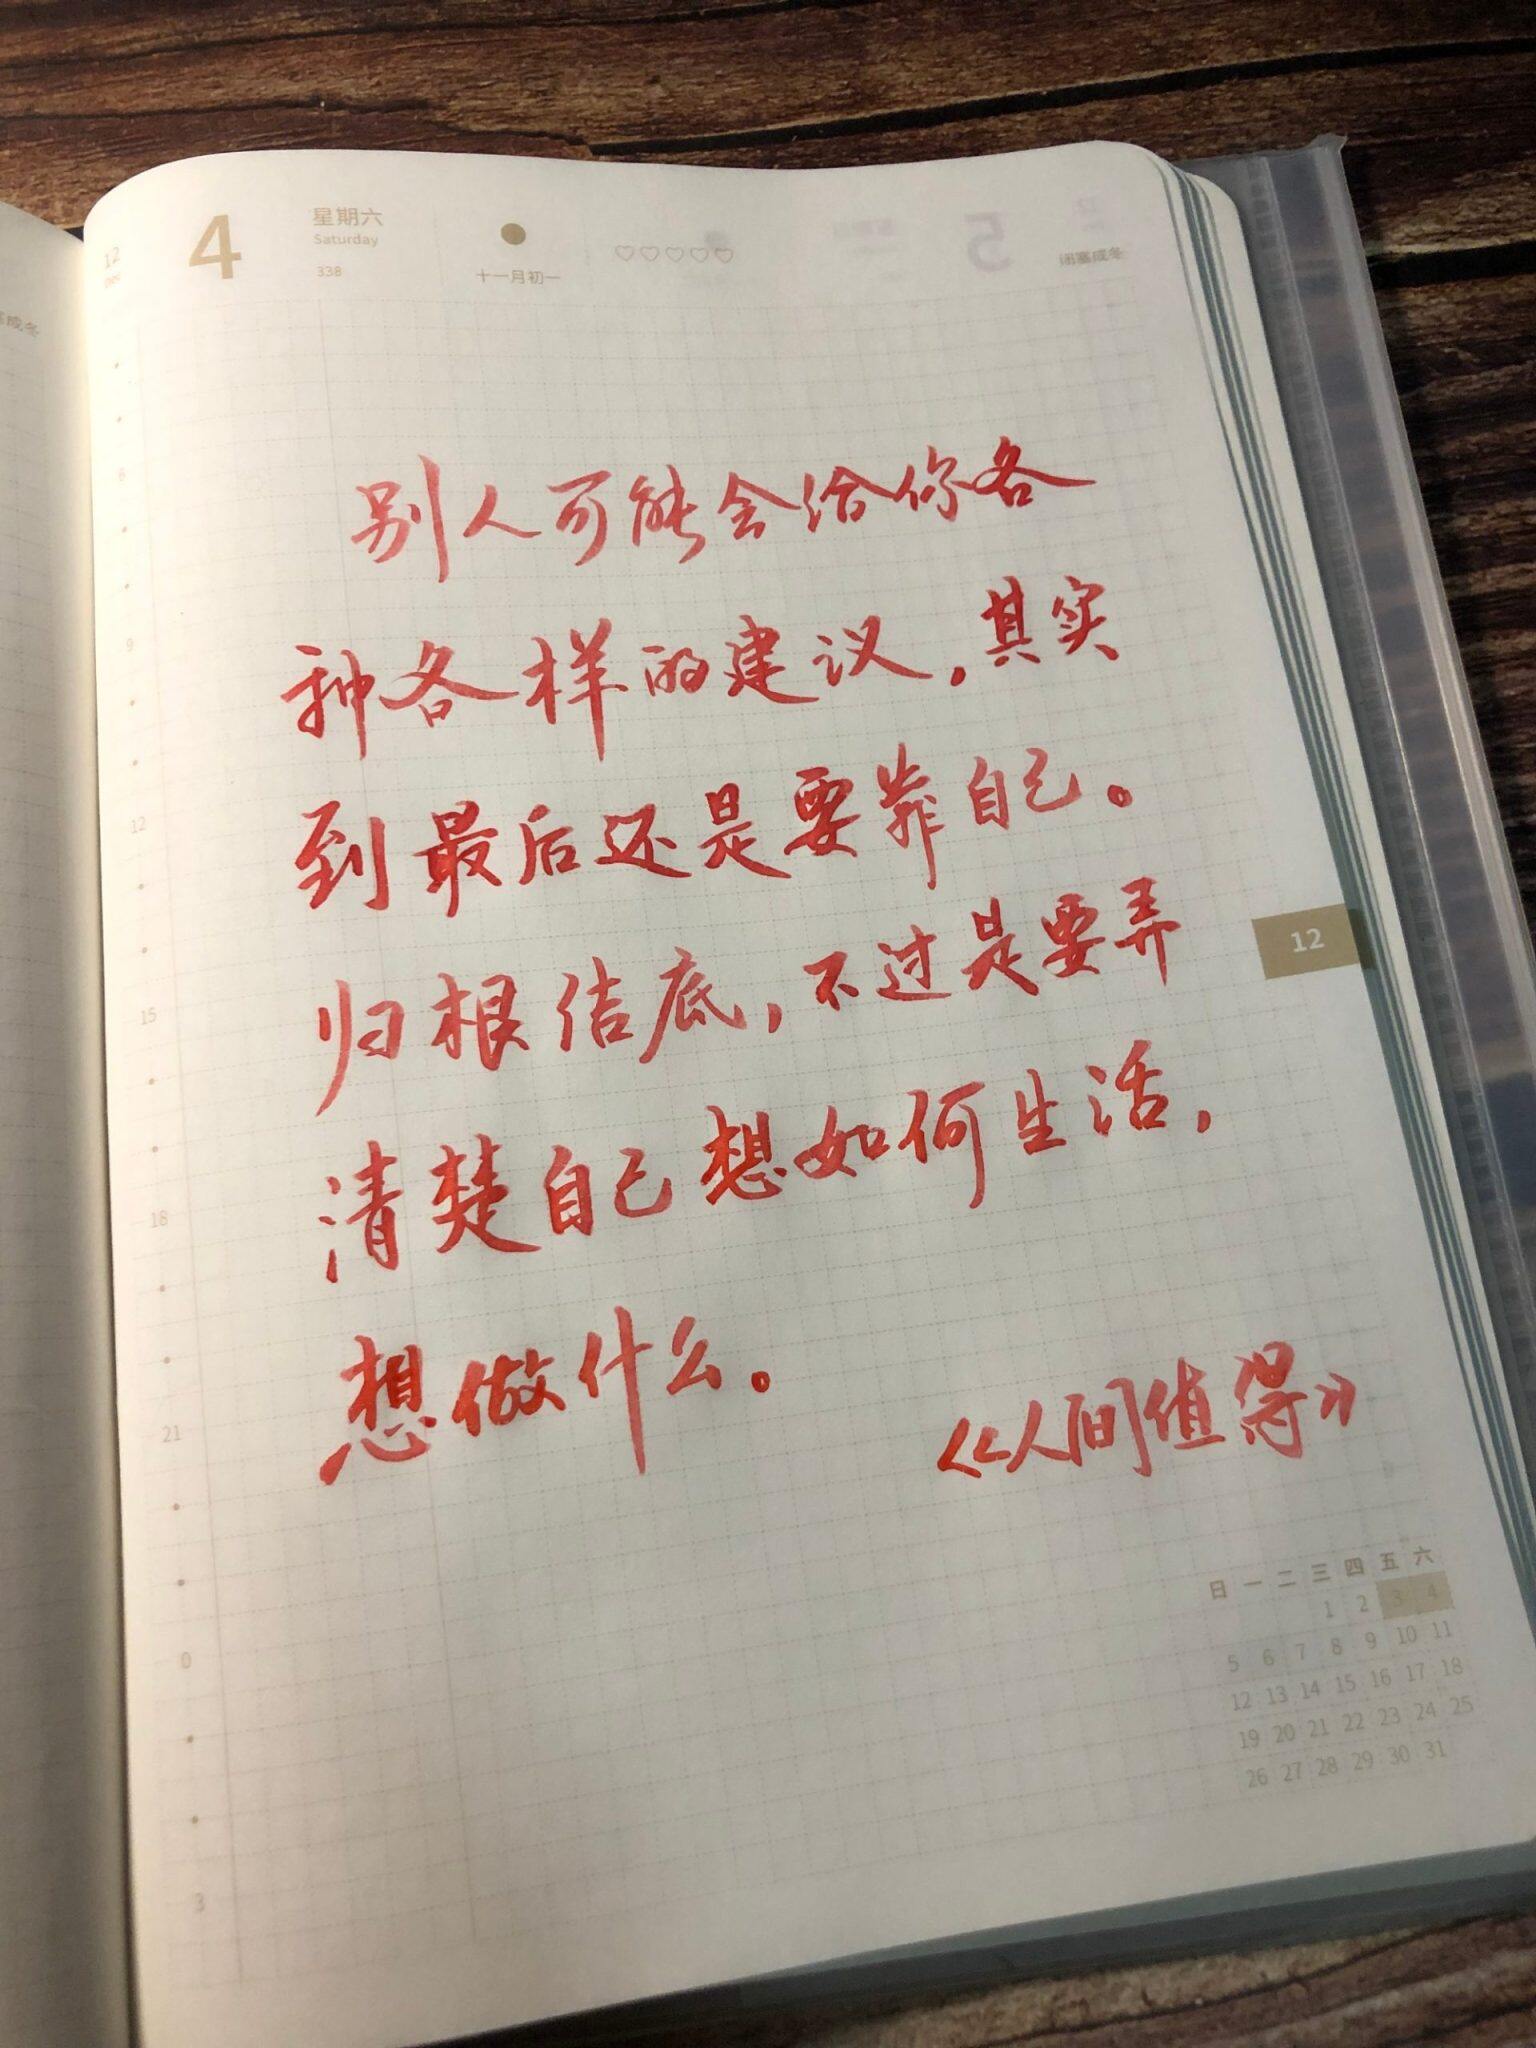 12
Dec
4
星期六
Saturday
338
十一月初一
♡♡♡♡♡
闭塞成冬
别人可能会给你各
种各样的建议，其实
到最后还是要靠自己。
归根结底，不过是要弄
清楚自己想如何生活，
想做什么。
《人间值得》
6
9
12
15
18
21
0
3
12
日 一 二 三 四 五 六
1 2 3 4
5 6 7 8 9 10 11
12 13 14 15 16 17 18
19 20 21 22 23 24 25
26 27 28 29 30 31